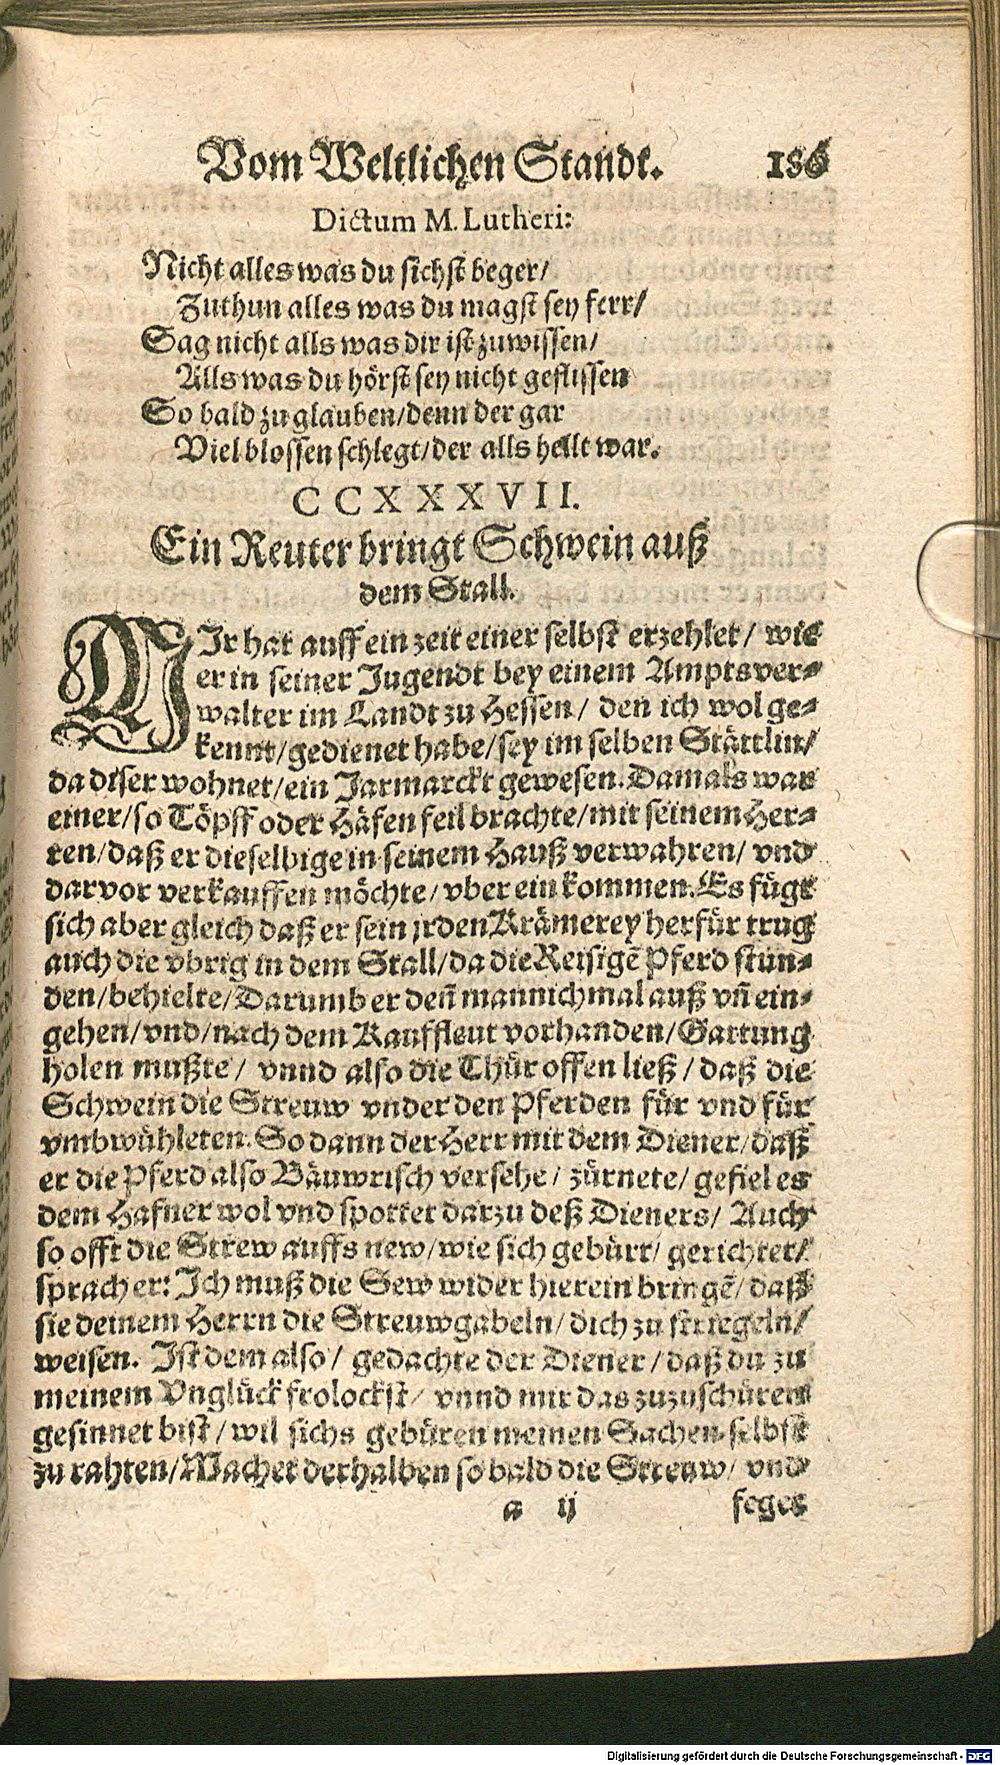 Vom Weltlichen Standt. 186
Dictum M. Lutheri:
Nicht alles was du sichst beger/
Zuthun alles was du magst sey ferr/
Sag nicht alls was dir ist zuwissen/
Alls was du hörst sey nicht geflissen
So bald zu glauben/denn der gar
Viel blossen schlegt/der alls hellt war.
CCXXXVII.
Ein Reuter bringt Schwein auß
dem Stall.
MIr hat auff ein zeit einer selbst erzehlet/ wie
er in seiner Jugendt bey einem Amptsver-
walter im Landt zu Hessen/ den ich wol ge-
kennt/gedienet habe/sey im selben Stättlin/
da diser wohnet/ein Jarmarckt gewesen. Damals war
einer/so Töpff oder Häfen feil brachte/mit seinem Her-
ren/daß er dieselbige in seinem Hauß verwahren/ vnd
darvor verkauffen möchte/ vber ein kommen. Es fügt
sich aber gleich daß er sein jrden Krämerey herfür trug
auch die vbrig in dem Stall/da die Reisigẽ Pferd stün-
den/behielte/Darumb er deñ mannichmal auß vñ ein-
gehen/vnd/nach dem Kauffleut vorhanden/Gattung
holen mußte/ vnnd also die Thür offen ließ/ daß die
Schwein die Streuw vnder den Pferden für vnd für
vmbwühleten. So dann der Herr mit dem Diener/daß
er die Pferd also Bäuwrisch versehe/ zürnete/ gefiel es
dem Hafner wol vnd spottet darzu deß Dieners/ Auch
so offt die Strew auffs new/wie sich gebürt/ gerichtet/
sprach er: Ich muß die Sew wider hierein bringẽ/ daß
sie deinem Herrn die Streuwgabeln/ dich zu striegeln/
weisen. Ist dem also/ gedachte der Diener/daß du zu
meinem Vnglück frolockst/ vnnd mir das zuzuschüren
gesinnet bist/wil sichs gebüren meinen Sachen selbst
zu rahten/Machet derhalben so bald die Streuw/ vnd
a ij feges
Digitalisierung gefördert durch die Deutsche Forschungsgemeinschaft - DFG